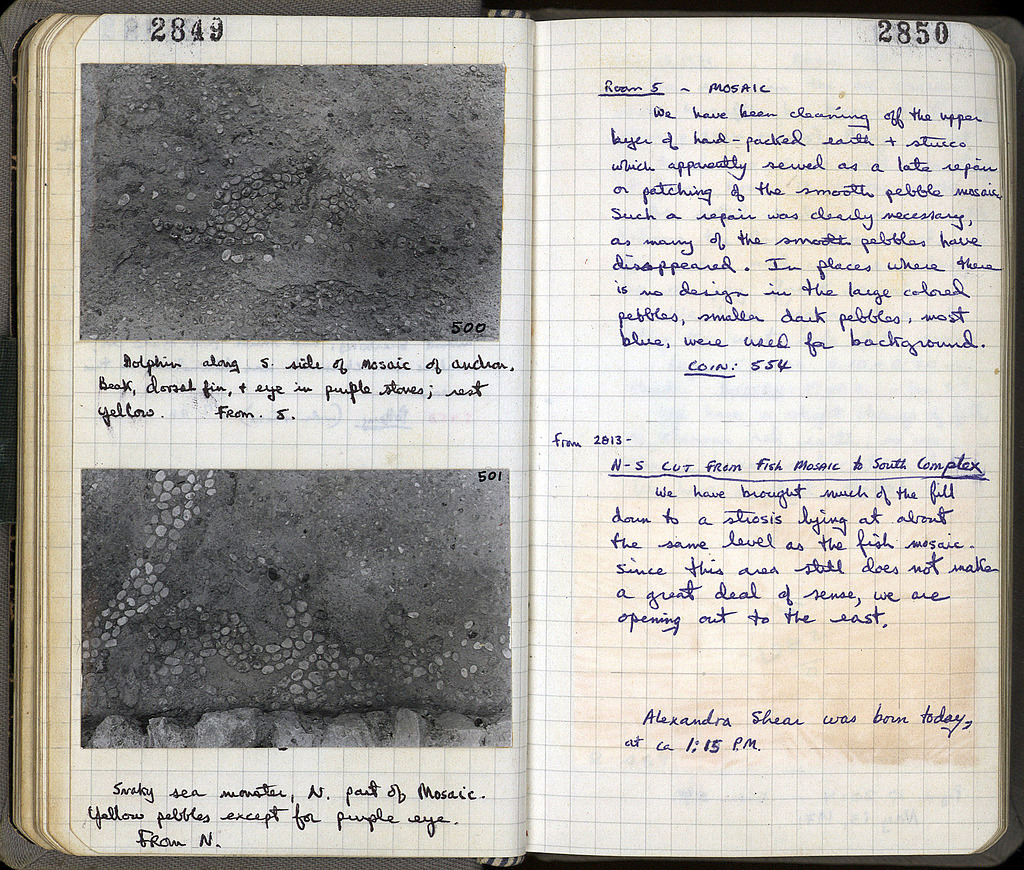 2849
500
Dolphin along S. side of Mosaic of andron.
Beak, dorsal fin, + eye in purple stones; rest
yellow. From S.
501
Snaky sea monster, N. part of Mosaic.
Yellow pebbles except for purple eye.
From N.
2850
Room 5 - MOSAIC
We have been cleaning off the upper
layer of hard-packed earth + stucco
which apparently served as a late repair
or patching of the smooth pebble mosaic.
Such a repair was clearly necessary,
as many of the smooth pebbles have
disappeared. In places where there
is no design in the large colored
pebbles, smaller dark pebbles, most
blue, were used for background.
COIN: 554
From 2813-
N-S CUT FROM FISH MOSAIC to South Complex
We have brought much of the fill
down to a strosis lying at about
the same level as the fish mosaic.
Since this area still does not make
a great deal of sense, we are
opening out to the east.
Alexandra Shear was born today,
at ca 1:15 P.M.